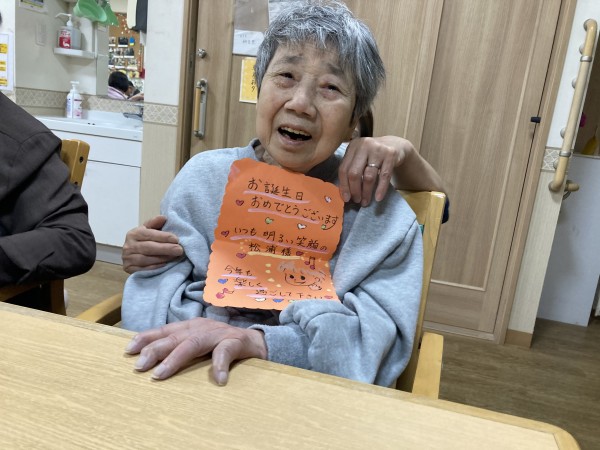 お誕生日
おめでとうございます
いつも明るい笑顔
松浦様!!
今年も
楽しく
過ごして下さい